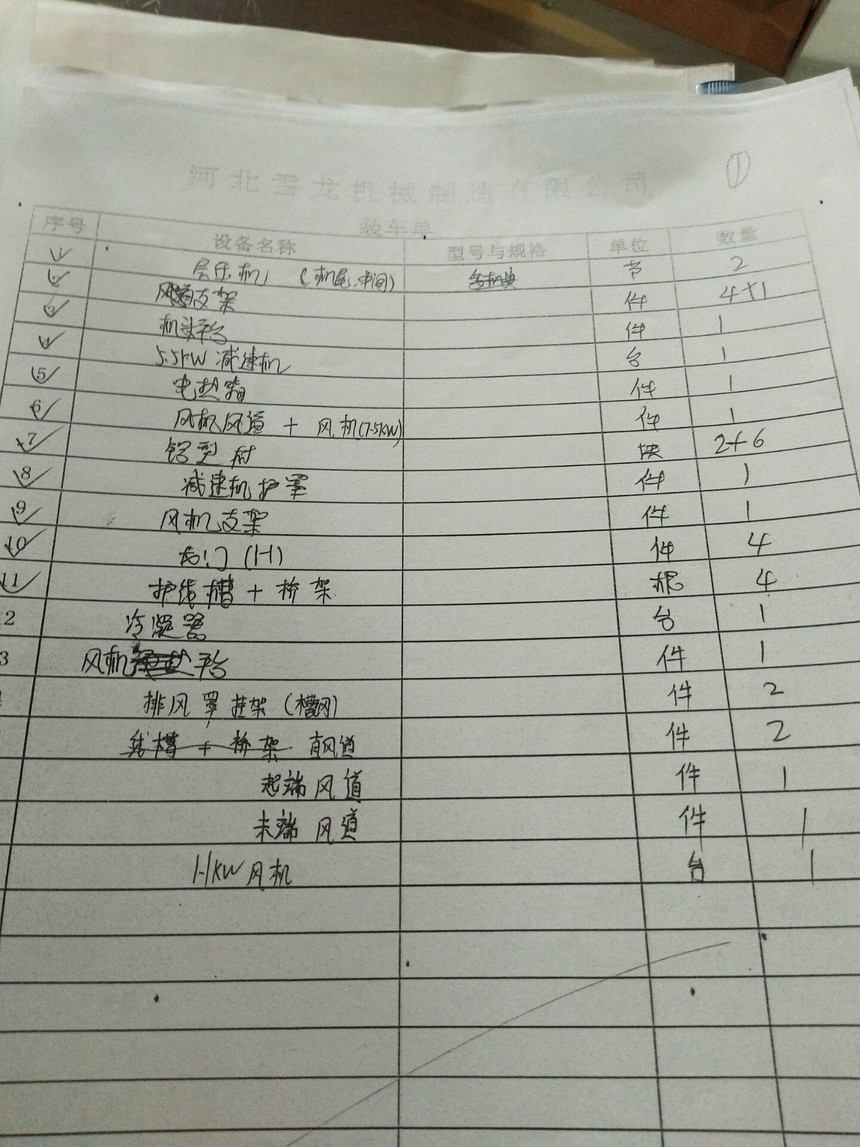 ①
河北雪龙机械制造有限公司
装车单
序号 设备名称 型号与规格 单位 数量
1 层压机 (机尾、中间) 节 2
2 风道支架 件 4+1
3 机头平台 件 1
4 5.5kW 减速机 台 1
5 电热箱 件 1
6 风机风道 + 风机(7.5kW) 件 1
7 铝型材 块 2+6
8 减速机护罩 件 1
9 风机支架 件 1
10 右门 (1-1) 件 4
11 护线槽 + 桥架 根 4
2 冷凝器 台 1
3 风机平台 件 1
排风罩挂架 (槽钢) 件 2
线槽 + 桥架 直风道 件 2
起端风道 件 1
末端风道 件 1
1.1KW 风机 台 1